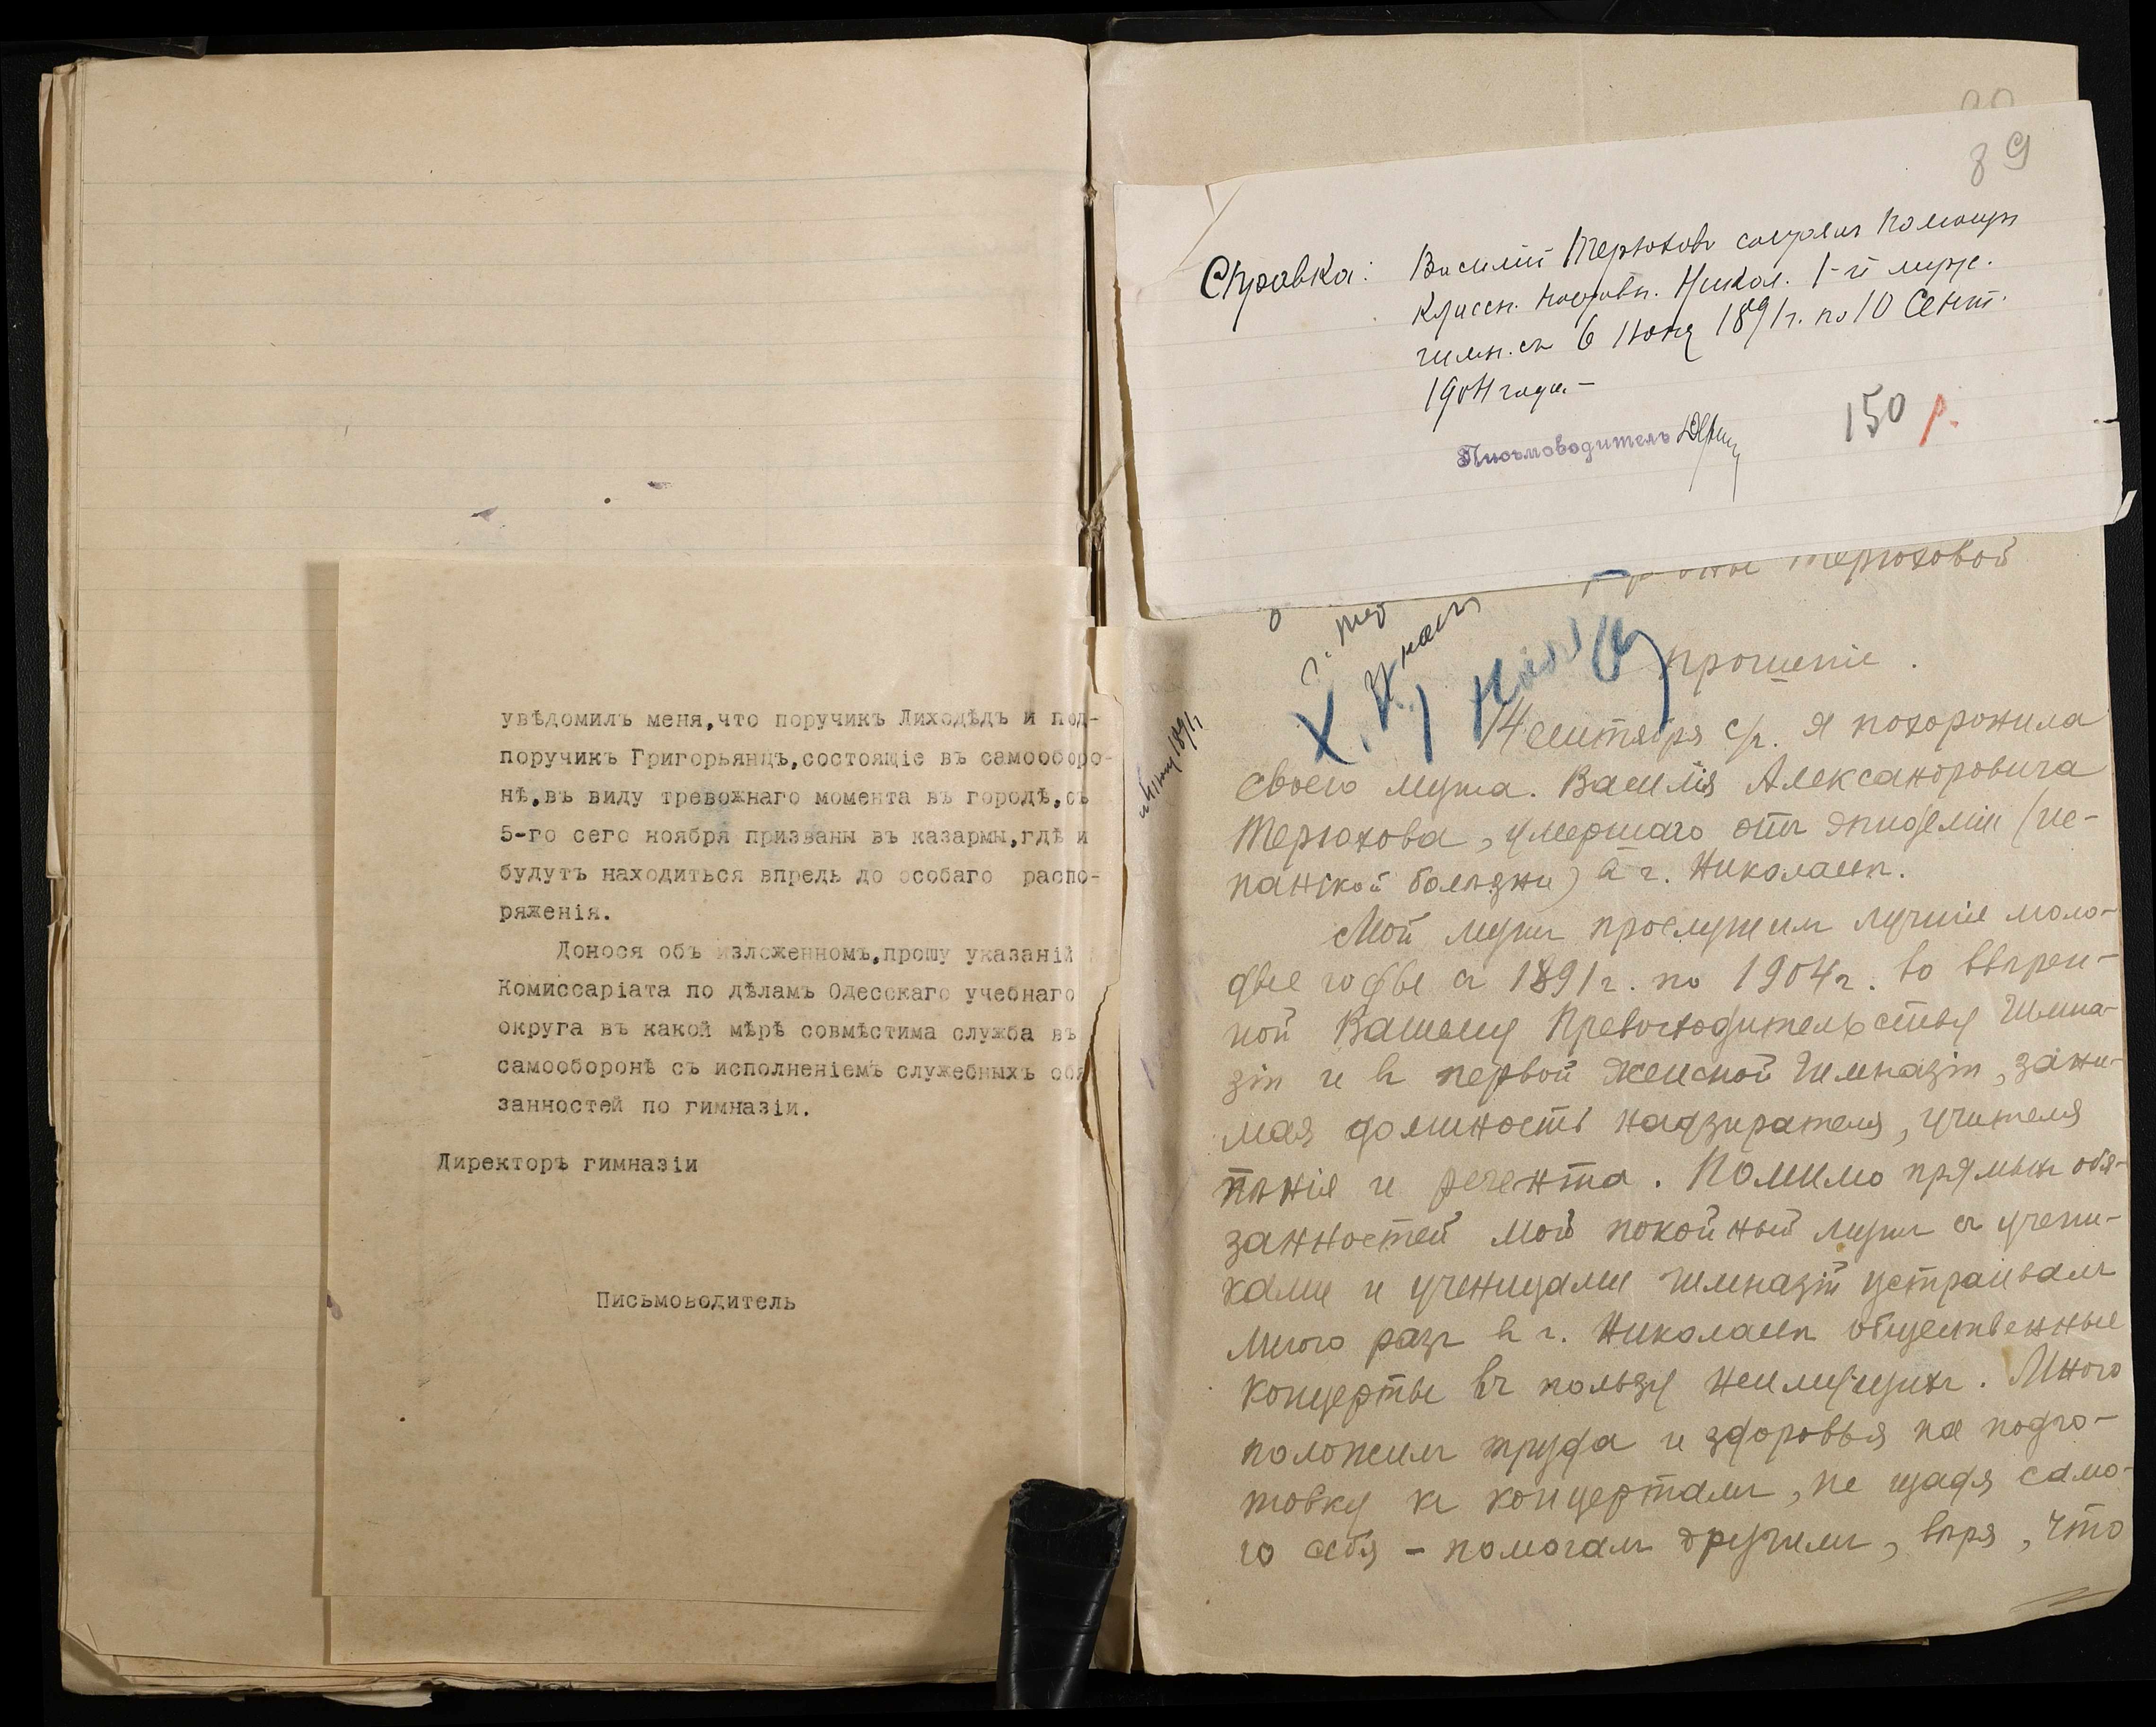 увѣдомилъ меня,что поручикъ Лиходѣдъ и под-
поручикъ Григорьянцъ,состоящіе въ самооборо-
нѣ,въ виду тревожнаго момента въ городѣ,съ
5-го сего ноября призваны въ казармы,гдѣ и
будутъ находиться впредь до особаго распо-
ряженія.
Донося объ изложенномъ,прошу указаній
Комиссаріата по дѣламъ Одесскаго учебнаго
округа въ какой мѣрѣ совмѣстима служба въ
самооборонѣ съ исполненіемъ служебныхъ обя
занностей по гимназіи.
Директоръ гимназіи
Письмоводитель
89
Справка: Василій Терюховъ состоялъ помощн
классн. наставн. Никол. 1-й муж.
гимн. съ 6 1891г. по 10 Сент.
1904 года.-
Письмоводитель
150 р.
Терюховой
прошеніе.
14 сентября с/г. я похоронила
своего мужа. Василія Александровича
Терюхова, умершаго отъ эпидеміи (ис-
панской болѣзни) въ г. Николаевѣ.
Мой мужъ прослужилъ лучшіе моло-
дые годы съ 1891г. по 1904г. во ввѣрен-
ной Вашему Превосходительству Гимна-
зіи и въ первой женской Гимназіи, зани-
мая должность надзирателя, учителя
пѣнія и регента. Помимо прямыхъ обя-
занностей мой покойный мужъ съ учени-
ками и ученицами гимназій устраивалъ
много разъ въ г. Николаевѣ общественные
концерты въ пользу неимущихъ. Много
положилъ труда и здоровья на подго-
товку къ концертамъ, не щадя само-
го себя - помогалъ другимъ, вѣря, что